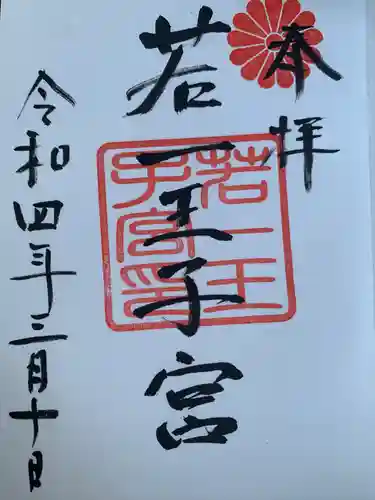 奉拝
若一王子宮
若一王子宮印
令和四年三月十日